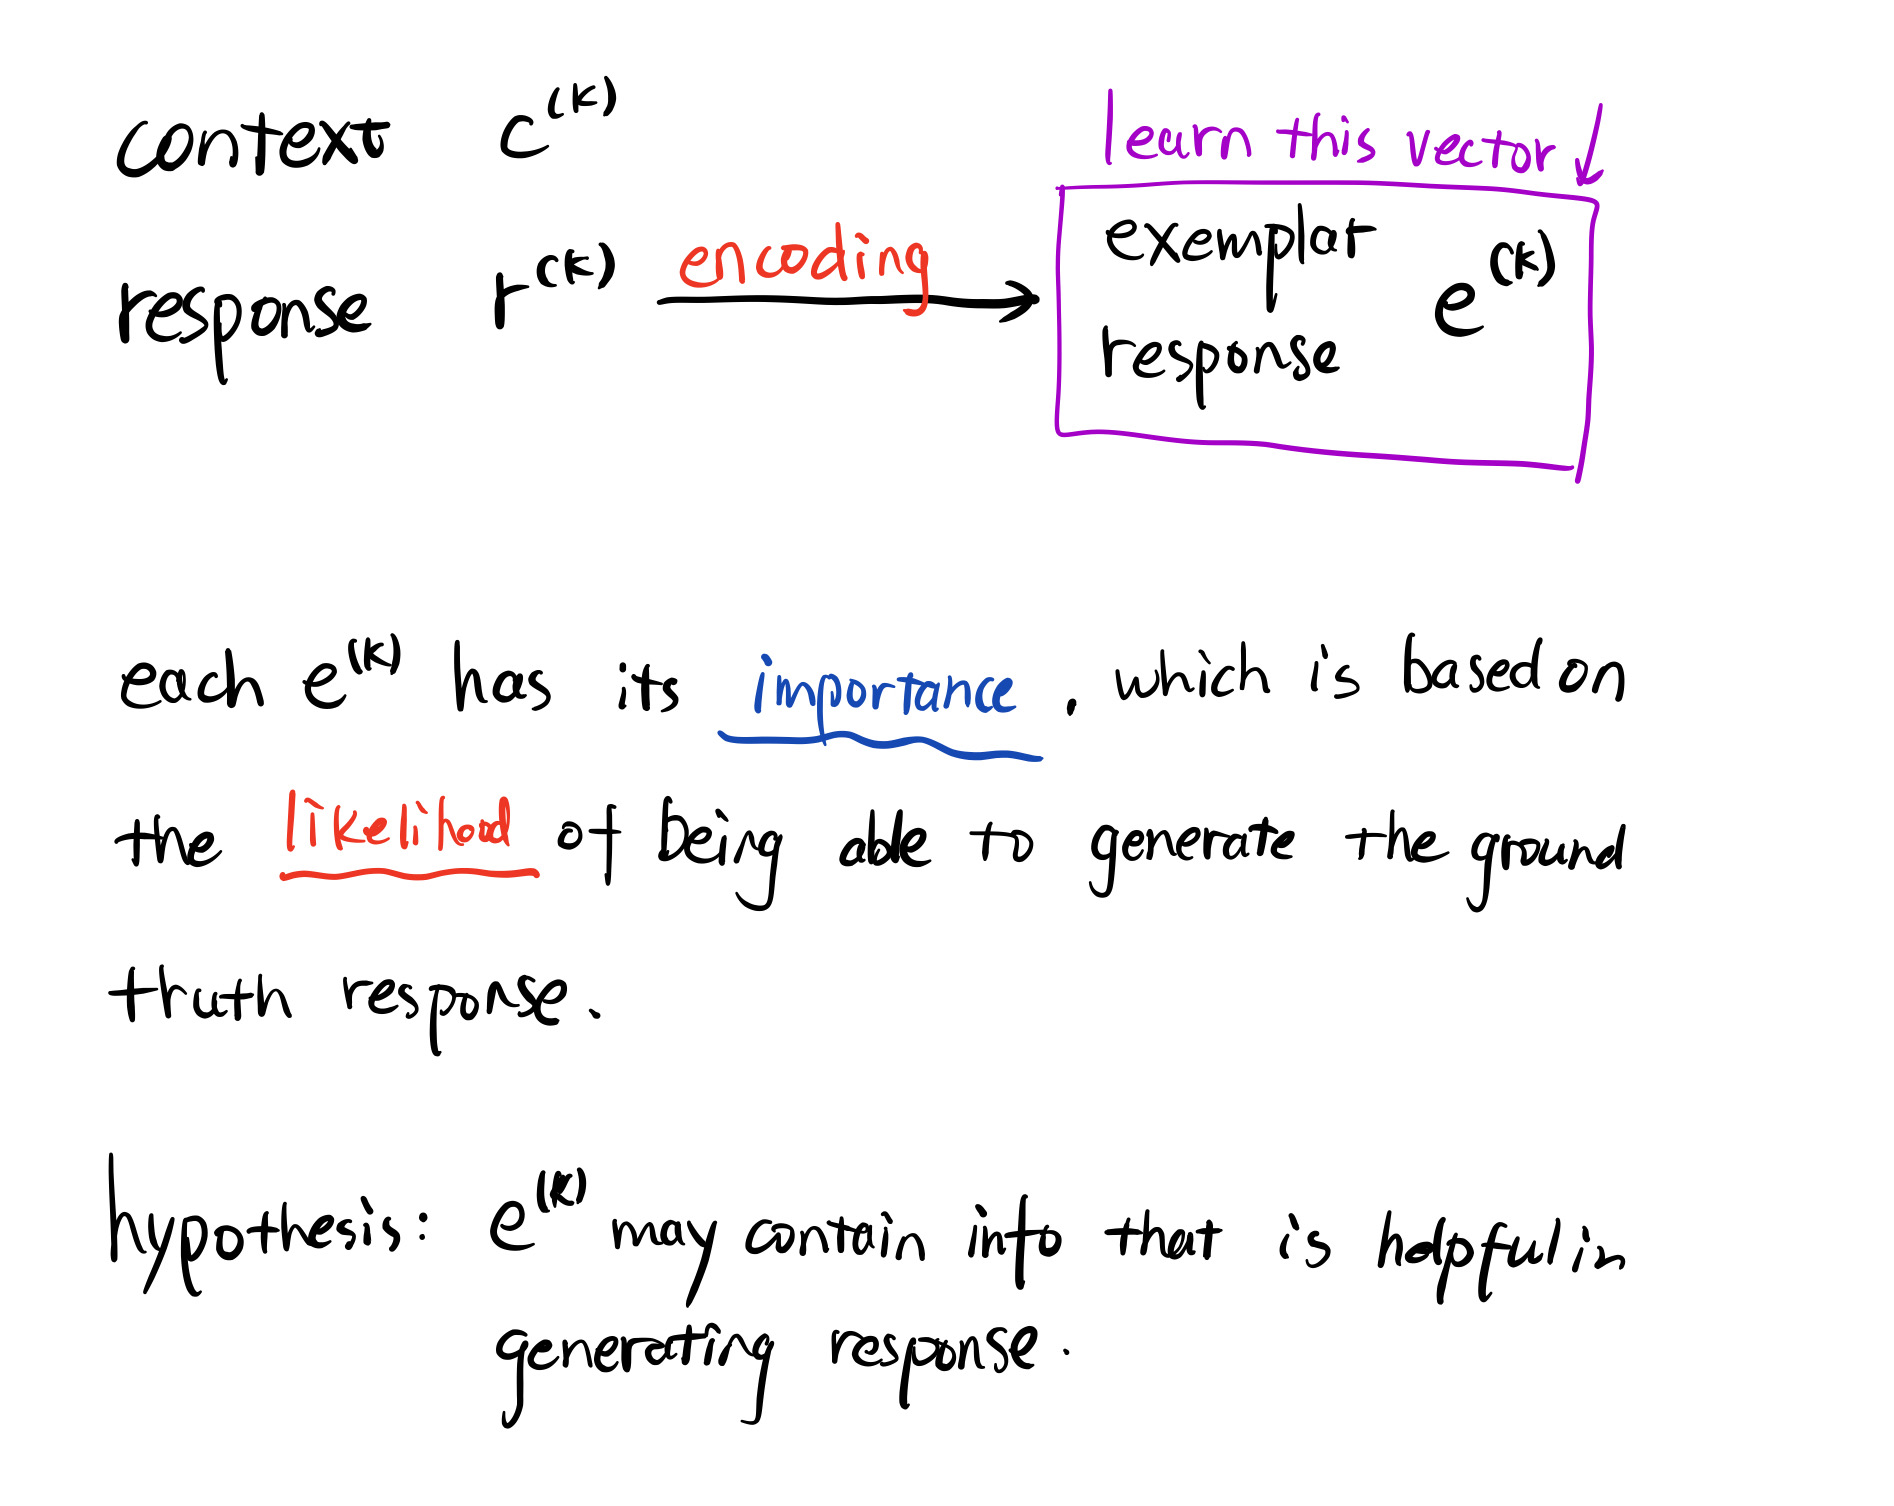 context c^(k)
learn this vector ↓
response r^(k) encoding → exemplar response e^(k)
each e^(k) has its importance, which is based on
the likelihood of being able to generate the ground
truth response.
hypothesis: e^(k) may contain info that is helpful in
generating response.